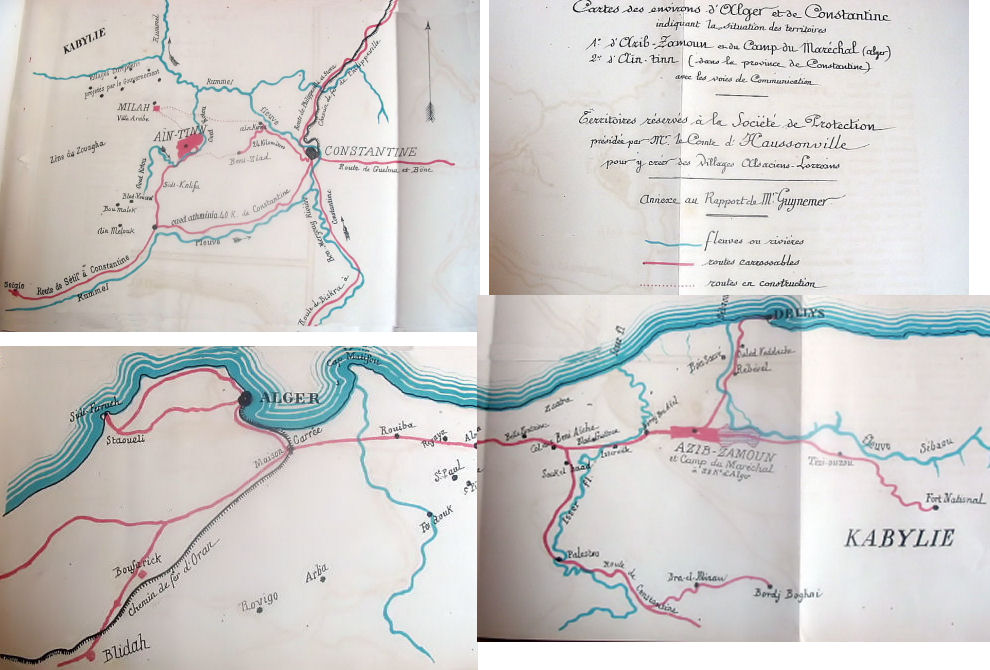 KABYLIE
Rummel
Villages Européens
projetés par le Gouvernement
Rummel
MILAH
Ville Arabe
AÏN-TINN
fleuve
Route de Philippeville
Chemin de fer de Philippeville
Beni-Ziad
CONSTANTINE
Route de Guelma et Bône
Zône du Zouagha
Oued Kotou
Sidi-Kalifa
Bou Malek
Aïn Melouk
oued athminia 40 K. de Constantine
fleuve
Constantine
Route de Sétif à Constantine
Rummel
Route de Biskra à
Cartes des environs d'Alger et de Constantine
indiquant la situation des territoires
1º d'Azib-Zamoun et du Camp du Maréchal (alger)
2º d'Aïn-tinn (dans la province de Constantine)
avec les voies de Communication
Territoires réservés à la Société de Protection
présidée par Mr. le Comte d'Haussonville
pour y créer des Villages Alsaciens-Lorrains
Annexe au Rapport de Mr Guynemer
fleuves ou rivières
routes carrossables
routes en construction
Cap Matifou
ALGER
Sidi-Ferruch
Staoueli
Maison Carrée
Rouiba
St Paul
Fondouk
Boufarick
Chemin de fer d'Oran
Arba
Rovigo
Blidah
DELLYS
Rebeval
Zaatra
Belle Fontaine
Beni Aïcha
Isserville
AZIB-ZAMOUN
et Camp du Maréchal
Isser fl.
fleuve Sébaou
Tizi-ouzou
Fort National
KABYLIE
Palestro
Route de Constantine
Dra-el-Mizan
Bordj Boghni